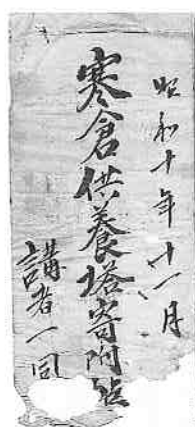 昭和十年十一月
寒倉供養塔寄附帳
講者一同